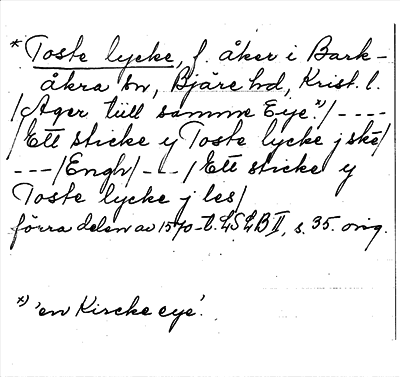 * Toste lycke, f. åker i Bark-
åkra sn, Bjäre hd, Krist. l.
/Ager tiill samme Eye.*)/ - - - -
/Ett sticke y Toste lycke j ske/
- - - /Engh/ - - - /Ett sticke y
Toste lycke j les/
förra delen av 1570-t. LSLB II, s. 35. orig.
*) 'en Kircke eye'.